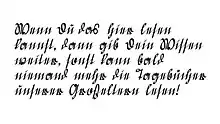 Wenn Du das hier lesen
kannst, dann gib Dein Wissen
weiter, sonst kann bald
niemand mehr die Tagebücher
unserer Großeltern lesen!